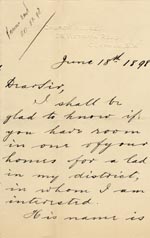 June 18th 1898
Dear Sir,
I shall be
glad to know if
you have room
in one of your
homes for a lad
in my district,
in whom I am
interested.
His name is